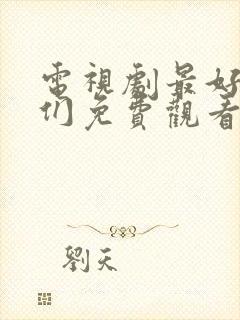 電視劇最好
们免費觀看
劉天